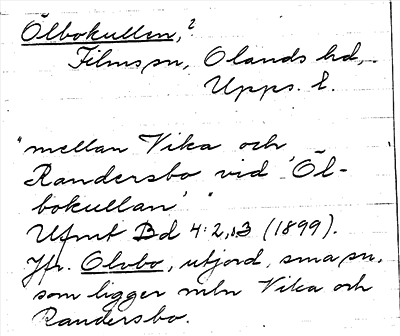 Ölbokullen, ?
Films sn, Olands hd,
Upps. l.
"mellan Vika och
Randersbo vid 'Öl-
bokullan' "
Ufmt Bd 4:2, 13 (1899).
Jfr. Olvbo, utjord, sma sn.
som ligger mln Vika och
Randersbo.